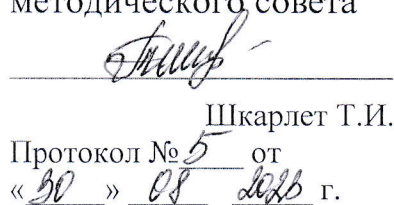 методического совета
Шкарлет Т.И.
Протокол № 5 от
«30» 08 2023 г.